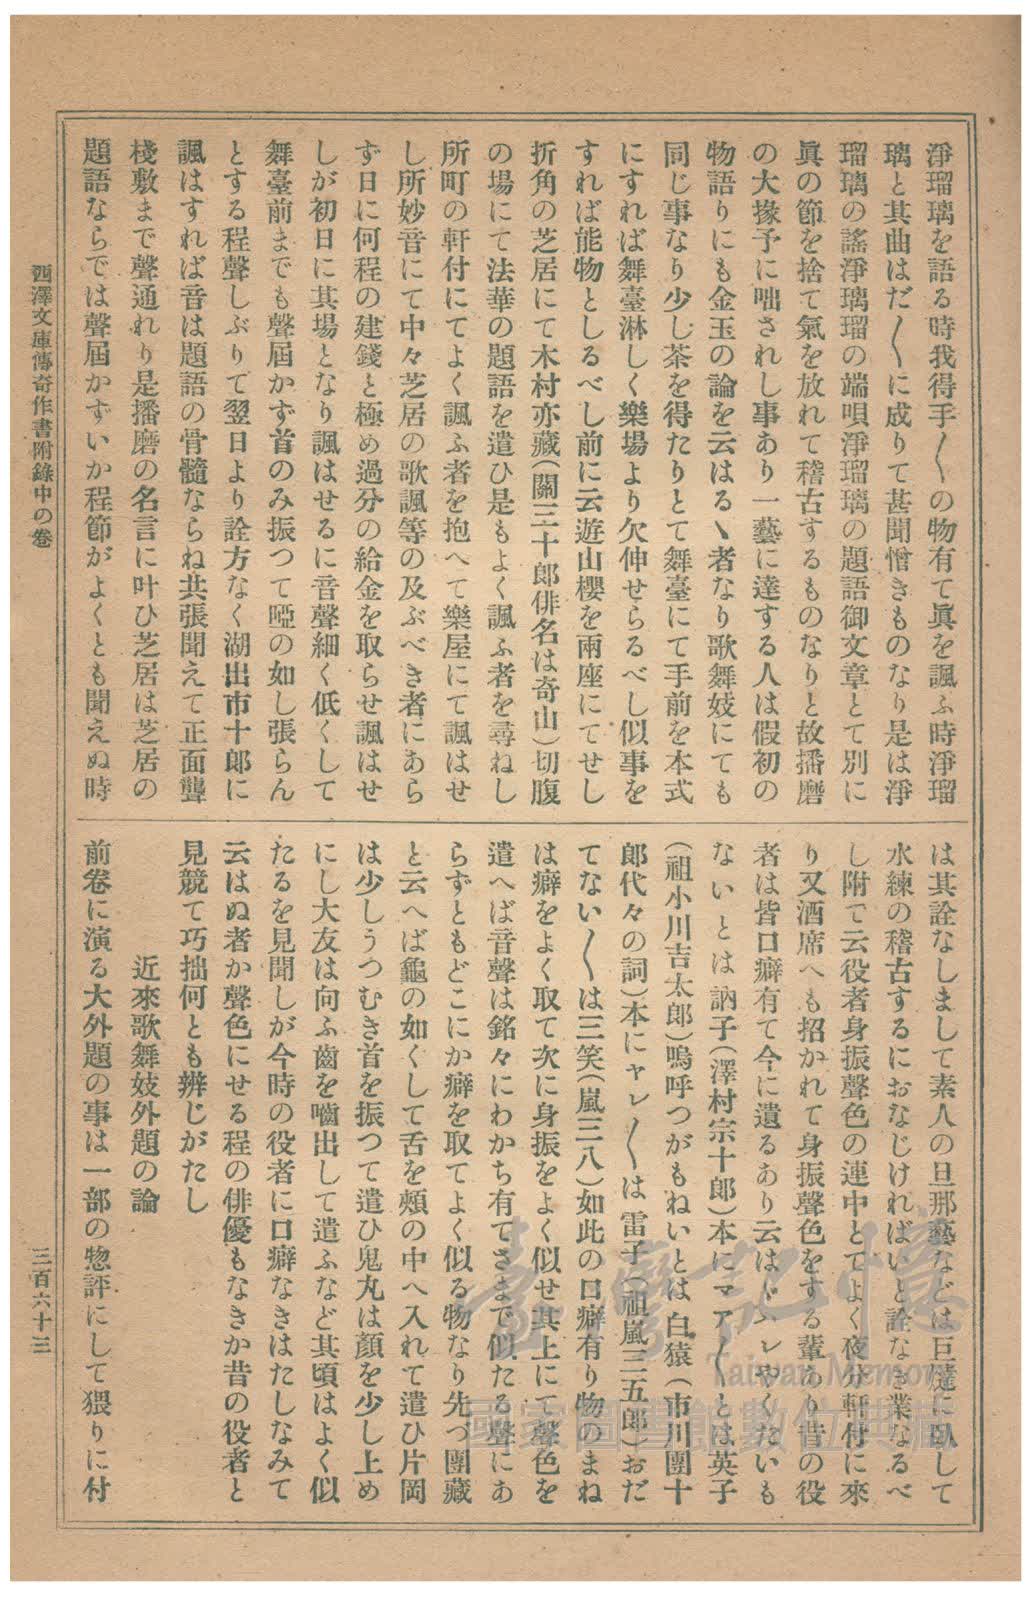 淨瑠璃を語る時我得手〳〵の物有て眞を諷ふ時淨瑠
璃と其曲はだ〳〵に成りて甚聞憎きものなり是は淨
瑠璃の謠淨璃瑠の端唄淨瑠璃の題語御文章とて別に
眞の節を捨て氣を放れて稽古するものなりと故播磨
の大掾予に咄されし事あり一藝に達する人は假初の
物語りにも金玉の論を云はるゝ者なり歌舞妓にても
同じ事なり少し茶を得たりとて舞臺にて手前を本式
にすれば舞臺淋しく樂場より欠伸せらるべし似事を
すれば能物としるべし前に云遊山櫻を兩座にてせし
折角の芝居にて木村亦藏(關三十郎俳名は奇山)切腹
の場にて法華の題語を遣ひ是もよく諷ふ者を尋ねし
所町の軒付にてよく諷ふ者を抱へて樂屋にて諷はせ
し所妙音にて中々芝居の歌諷等の及ぶべき者にあら
ず日に何程の建錢と極め過分の給金を取らせ諷はせ
しが初日に其場となり諷はせるに音聲細く低くして
舞臺前までも聲屆かず首のみ振つて啞の如し張らん
とする程聲しぶりて翌日より詮方なく湖出市十郎に
諷はすれば音は題語の骨髓ならね共張聞えて正面聾
棧敷まで聲通れり是播磨の名言に叶ひ芝居は芝居の
題語ならでは聲屆かずいか程節がよくとも聞えぬ時
は其詮なしまして素人の旦那藝などは巨燵に臥して
水練の稽古するにおなじければいと詮なき業なるべ
し附て云役者身振聲色の連中とてよく夜分軒付に來
り又酒席へも招かれて身振聲色をする輩あり昔の役
者は皆口癖有て今に遺るあり云はゞハレやくたいも
ないとは訥子(澤村宗十郎)本にマア〳〵とは英子
(祖小川吉太郎)嗚呼つがもねいとは白猿(市川團十
郎代々の詞)本にヤレ〳〵は雷子(祖嵐三五郎)おだ
てない〳〵は三笑(嵐三八)如此の口癖有り物のまね
は癖をよく取て次に身振をよく似せ其上にて聲色を
遣へば音聲は銘々にわかち有てさまで似たる聲にあ
らずともどこにか癖を取てよく似る物なり先づ團藏
と云へば龜の如くして舌を頰の中へ入れて遣ひ片岡
は少しうつむき首を振つて遣ひ鬼丸は顏を少し上め
にし大友は向ふ齒を嚙出して遣ふなど其頃はよく似
たるを見聞しが今時の役者に口癖なきはたしなみて
云はぬ者か聲色にせる程の俳優もなきか昔の役者と
見競て巧拙何とも辨じがたし
近來歌舞妓外題の論
前卷に演る大外題の事は一部の惣評にして猥りに付
西澤文庫傳奇作書附錄中の卷
三百六十三
臺灣記憶
Taiwan Memory
國家圖書館數位典藏